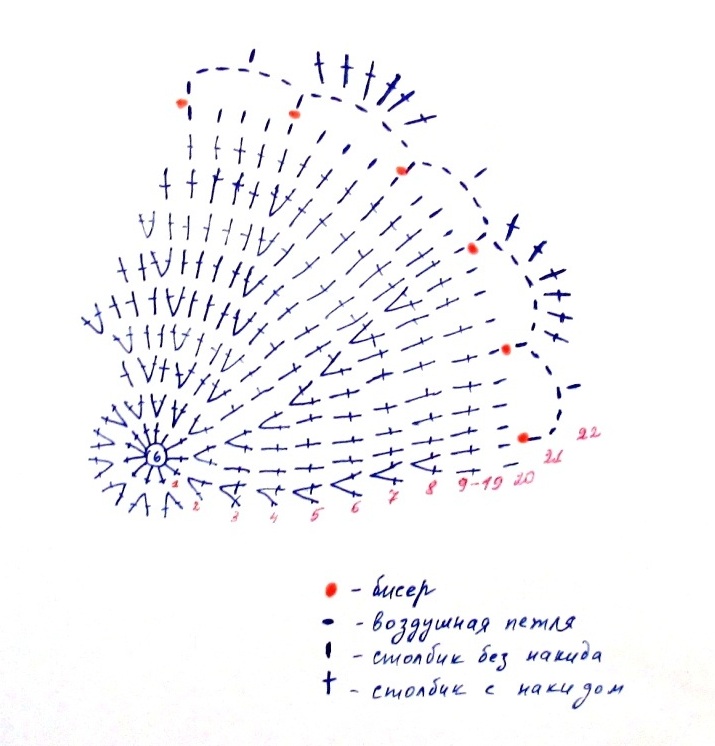 6
1 2 3 4 5 6 7 8 9-19 20 21 22
- бисер
- воздушная петля
- столбик без накида
- столбик с накидом